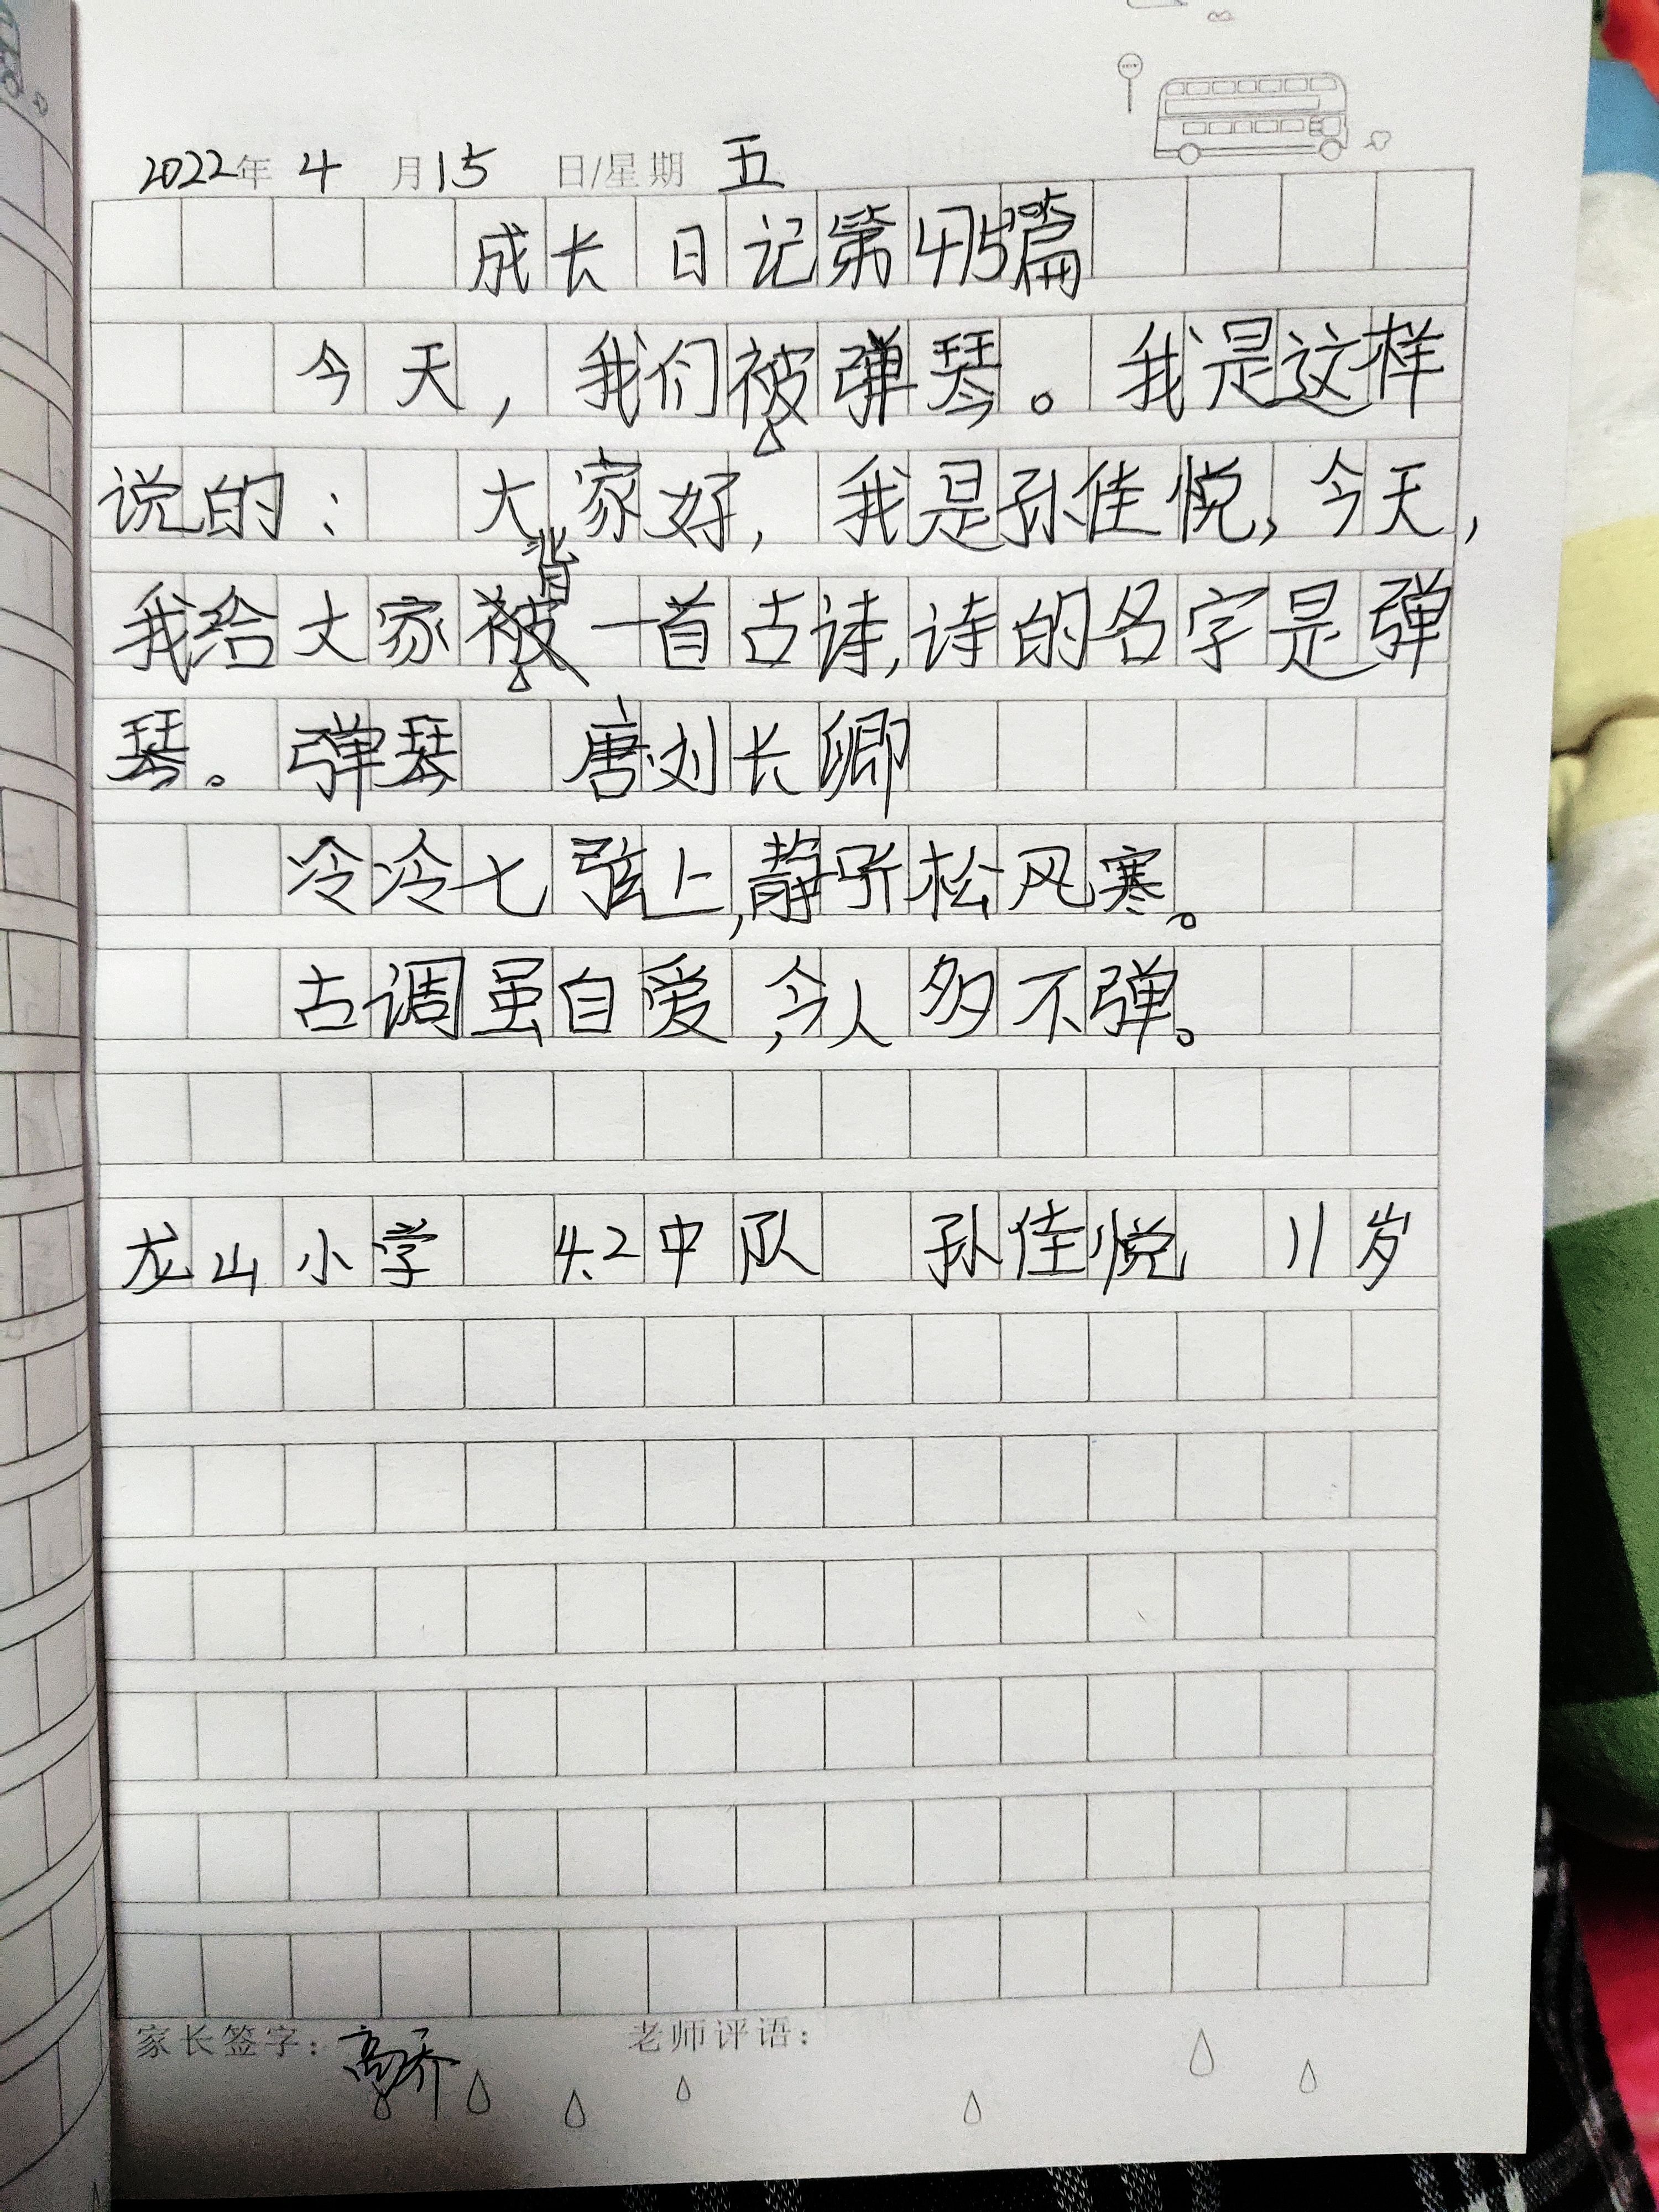 2022年 4 月 15 日/星期 五
成长日记第475篇
今天，我们被弹琴。我是这样
说的： 大家好，我是孙佳悦，今天，
背
我给大家被一首古诗，诗的名字是弹
琴。弹琴 唐刘长卿
冷冷七弦上，静听松风寒。
古调虽自爱，今人多不弹。
龙山小学 4.2中队 孙佳悦 11岁
家长签字： 老师评语：